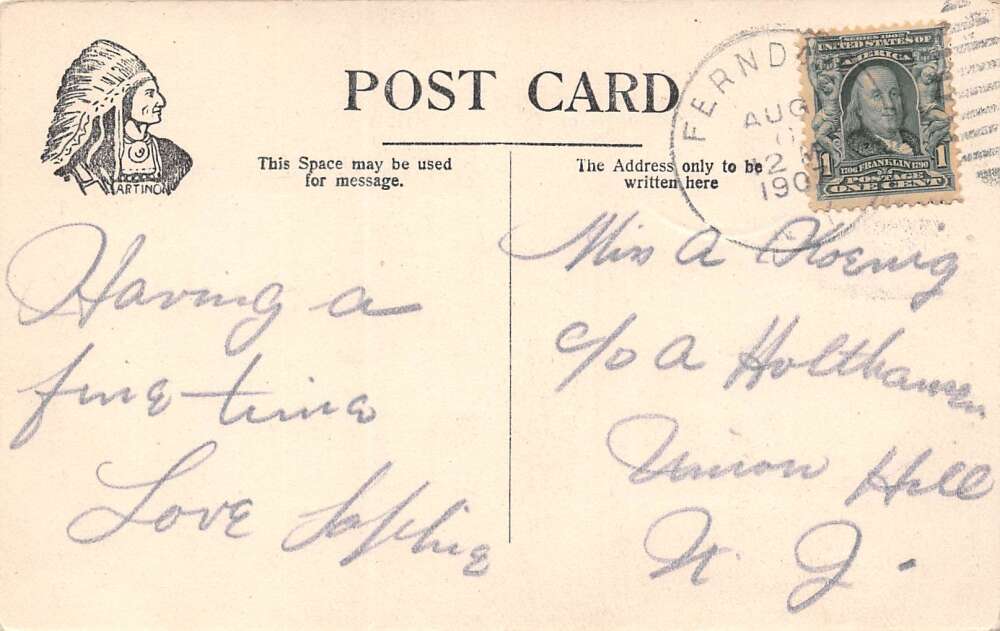 POST CARD
This Space may be used
for message.
The Address only to be
written here
FERND
AUG
2
190
SERIES 1902
UNITED STATES OF
AMERICA
1 1
1706 FRANKLIN 1790
POSTAGE
ONE CENT
Having a
fine time
Love Sophie
Miss A Koenig
c/o A Holthausen
Union Hill
N. J.